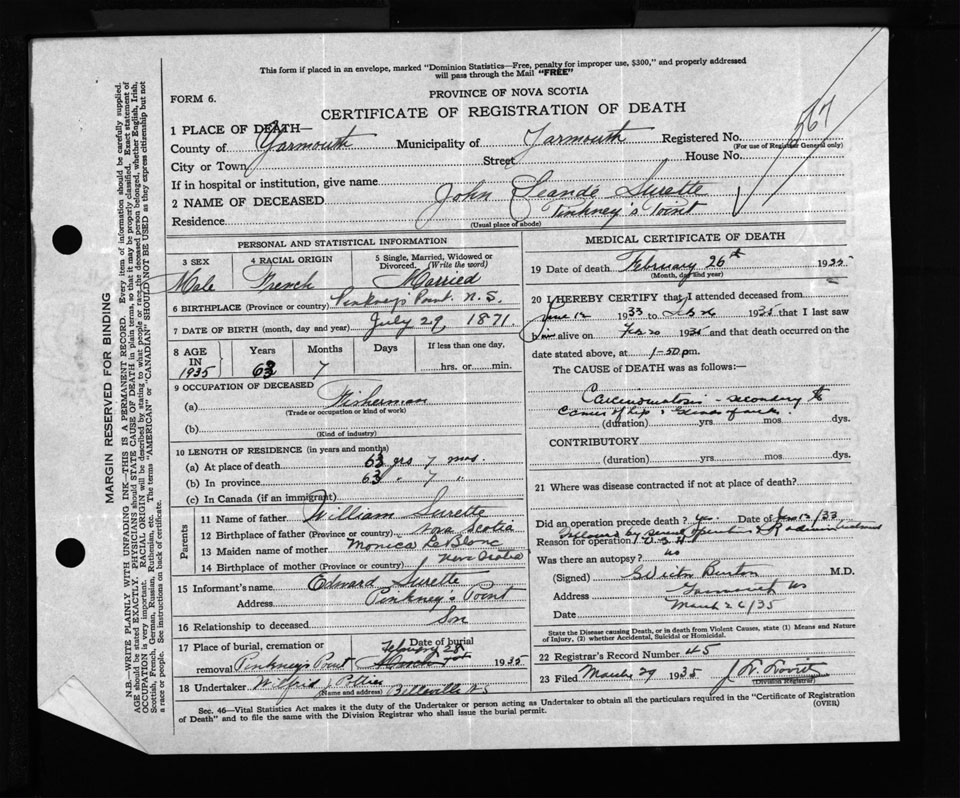 This form if placed in an envelope, marked "Dominion Statistics—Free, penalty for improper use, $300," and properly addressed
will pass through the Mail "FREE"
FORM 6.
PROVINCE OF NOVA SCOTIA
CERTIFICATE OF REGISTRATION OF DEATH
567
1 PLACE OF DEATH—
County of Yarmouth Municipality of Yarmouth Registered No.
(For use of Register General only)
City or Town Street House No.
If in hospital or institution, give name
2 NAME OF DECEASED John Leande Surette
Residence Pinkney's Point
(Usual place of abode)
MARGIN RESERVED FOR BINDING
N.B.—WRITE PLAINLY WITH UNFADING INK—THIS IS A PERMANENT RECORD. Every item of information should be carefully supplied.
AGE should be stated EXACTLY. PHYSICIANS should STATE CAUSE OF DEATH in plain terms, so that it may be properly classified. Exact statement of
OCCUPATION is very important. RACIAL ORIGIN will be described by stating to what people or race the deceased person belonged, whether English, Irish,
Scottish, French, German, Russian, Ruthenian, etc. The terms "AMERICAN" or "CANADIAN" SHOULD NOT BE USED as they express citizenship but not
a race or people. See instructions on back of certificate.
PERSONAL AND STATISTICAL INFORMATION
3 SEX 4 RACIAL ORIGIN 5 Single, Married, Widowed or
Divorced. (Write the word)
Male French Married
6 BIRTHPLACE (Province or country) Pinkney's Point N.S.
7 DATE OF BIRTH (month, day and year) July 29, 1871.
8 AGE IN 1935 Years 63 Months 7 Days If less than one day,
hrs. or min.
9 OCCUPATION OF DECEASED
(a) Fisherman
(Trade or occupation or kind of work)
(b)
(Kind of industry)
10 LENGTH OF RESIDENCE (in years and months)
(a) At place of death 63 yrs 7 mos.
(b) In province 63 " 7 "
(c) In Canada (if an immigrant)
Parents
11 Name of father William Surette
12 Birthplace of father (Province or country) Nova Scotia
13 Maiden name of mother Monica LeBlanc
14 Birthplace of mother (Province or country) Nova Scotia
15 Informant's name Edward Surette
Address Pinkney's Point
16 Relationship to deceased Son
17 Place of burial, cremation or Date of burial
February 28
removal Pinkney's Point March 1935
18 Undertaker Wilfrid Pottier Belleville NS
(Name and address)
MEDICAL CERTIFICATE OF DEATH
19 Date of death February 26th 1935
(Month, day and year)
20 I HEREBY CERTIFY that I attended deceased from
June 12 1933 to Feb 26 1935 that I last saw
him alive on Feb 20 1935 and that death occurred on
date stated above, at 1-50 pm.
The CAUSE OF DEATH was as follows:—
Carcinomatosis - secondary to
Cancer of lip &
(duration) yrs. mos. dys.
CONTRIBUTORY
(duration) yrs. mos. dys.
21 Where was disease contracted if not at place of death?
Did an operation precede death? yes Date of June 12/33
followed by operation
Reason for operation
Was there an autopsy? no
(Signed) Burton M.D.
Address Yarmouth NS
Date March 26/35
State the Disease causing Death, or in death from Violent Causes, state (1) Means and Nature
of Injury, (2) whether Accidental, Suicidal or Homicidal.
22 Registrar's Record Number 45
23 Filed March 29 1935 Lovitt
(Division Registrar)
Sec. 46—Vital Statistics Act makes it the duty of the Undertaker or person acting as Undertaker to obtain all the particulars required in the "Certificate of Registration
of Death" and to file the same with the Division Registrar who shall issue the burial permit.
(OVER)